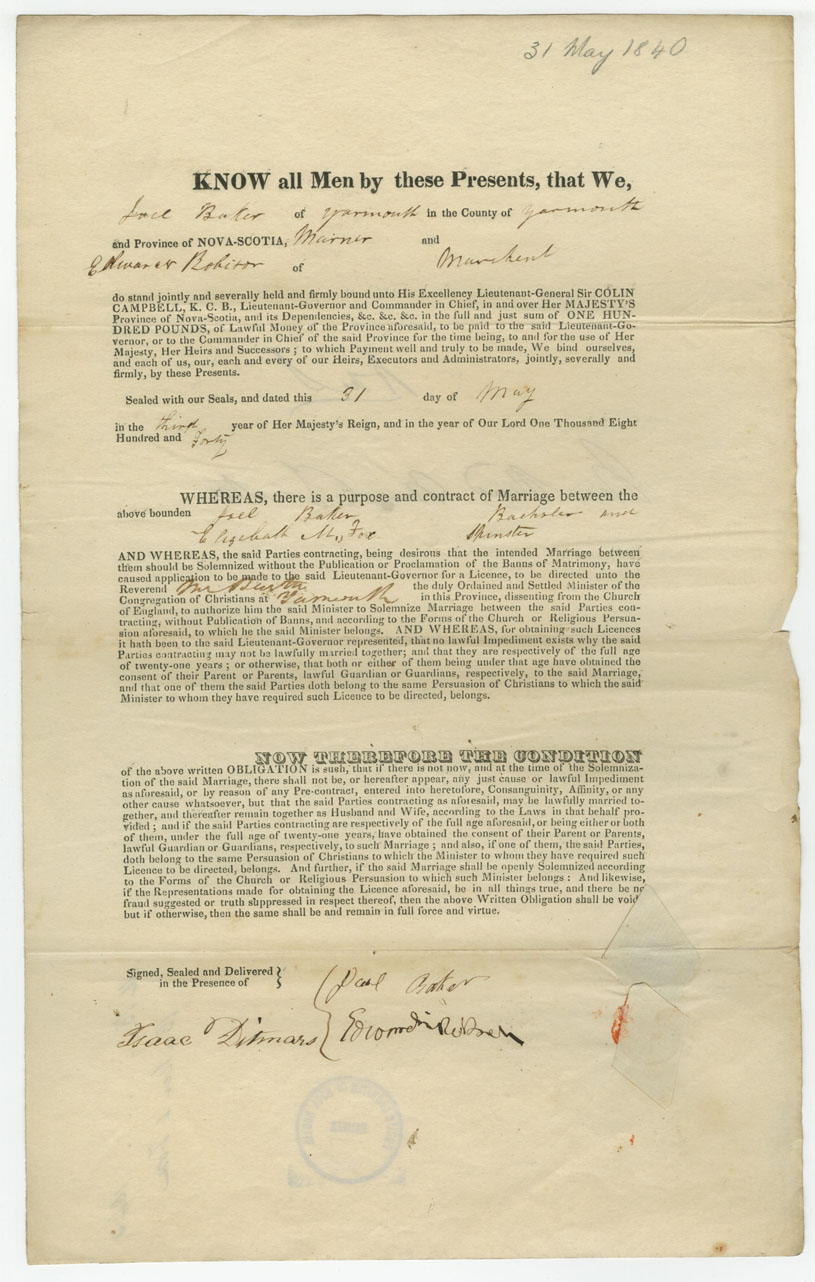 31 May 1840
KNOW all Men by these Presents, that We,
Joel Baker of Yarmouth in the County of Yarmouth
and Province of NOVA-SCOTIA, Marner and
Edward Robison of Marchent
do stand jointly and severally held and firmly bound unto His Excellency Lieutenant-General Sir COLIN
CAMPBELL, K. C. B., Lieutenant-Governor and Commander in Chief, in and over Her MAJESTY'S
Province of Nova-Scotia, and its Dependencies, &c. &c. &c. in the full and just sum of ONE HUN-
DRED POUNDS, of Lawful Money of the Province aforesaid, to be paid to the said Lieutenant-Go-
vernor, or to the Commander in Chief of the said Province for the time being, to and for the use of Her
Majesty, Her Heirs and Successors ; to which Payment well and truly to be made, We bind ourselves,
and each of us, our, each and every of our Heirs, Executors and Administrators, jointly, severally and
firmly, by these Presents.
Sealed with our Seals, and dated this 31 day of May
in the third year of Her Majesty's Reign, and in the year of Our Lord One Thousand Eight
Hundred and Forty
WHEREAS, there is a purpose and contract of Marriage between the
above bounden Joel Baker Bachsler and
Elizebath M. Fox Spinster
AND WHEREAS, the said Parties contracting, being desirous that the intended Marriage between
them should be Solemnized without the Publication or Proclamation of the Banns of Matrimony, have
caused application to be made to the said Lieutenant-Governor for a Licence, to be directed unto the
Reverend Mr the duly Ordained and Settled Minister of the
Congregation of Christians at Yarmouth in this Province, dissenting from the Church
of England, to authorize him the said Minister to Solemnize Marriage between the said Parties con-
tracting, without Publication of Banns, and according to the Forms of the Church or Religious Persua-
sion aforesaid, to which he the said Minister belongs. AND WHEREAS, for obtaining such Licences
it hath been to the said Lieutenant-Governor represented, that no lawful Impediment exists why the said
Parties contracting may not be lawfully married together; and that they are respectively of the full age
of twenty-one years ; or otherwise, that both or either of them being under that age have obtained the
consent of their Parent or Parents, lawful Guardian or Guardians, respectively, to the said Marriage,
and that one of them the said Parties doth belong to the same Persuasion of Christians to which the said
Minister to whom they have required such Licence to be directed, belongs.
NOW THEREFORE THE CONDITION
of the above written OBLIGATION is such, that if there is not now, and at the time of the Solemniza-
tion of the said Marriage, there shall not be, or hereafter appear, any just cause or lawful Impediment
as aforesaid, or by reason of any Pre-contract, entered into heretofore, Consanguinity, Affinity, or any
other cause whatsoever, but that the said Parties contracting as aforesaid, may be lawfully married to-
gether, and thereafter remain together as Husband and Wife, according to the Laws in that behalf pro-
vided ; and if the said Parties contracting are respectively of the full age aforesaid, or being either or both
of them, under the full age of twenty-one years, have obtained the consent of their Parent or Parents,
lawful Guardian or Guardians, respectively, to such Marriage ; and also, if one of them, the said Parties,
doth belong to the same Persuasion of Christians to which the Minister to whom they have required such
Licence to be directed, belongs. And further, if the said Marriage shall be openly Solemnized according
to the Forms of the Church or Religious Persuasion to which such Minister belongs : And likewise,
if the Representations made for obtaining the Licence aforesaid, be in all things true, and there be no
fraud suggested or truth suppressed in respect thereof, then the above Written Obligation shall be void
but if otherwise, then the same shall be and remain in full force and virtue.
Signed, Sealed and Delivered
in the Presence of
Joel Baker
Isaac Ditmars
Edward Robison